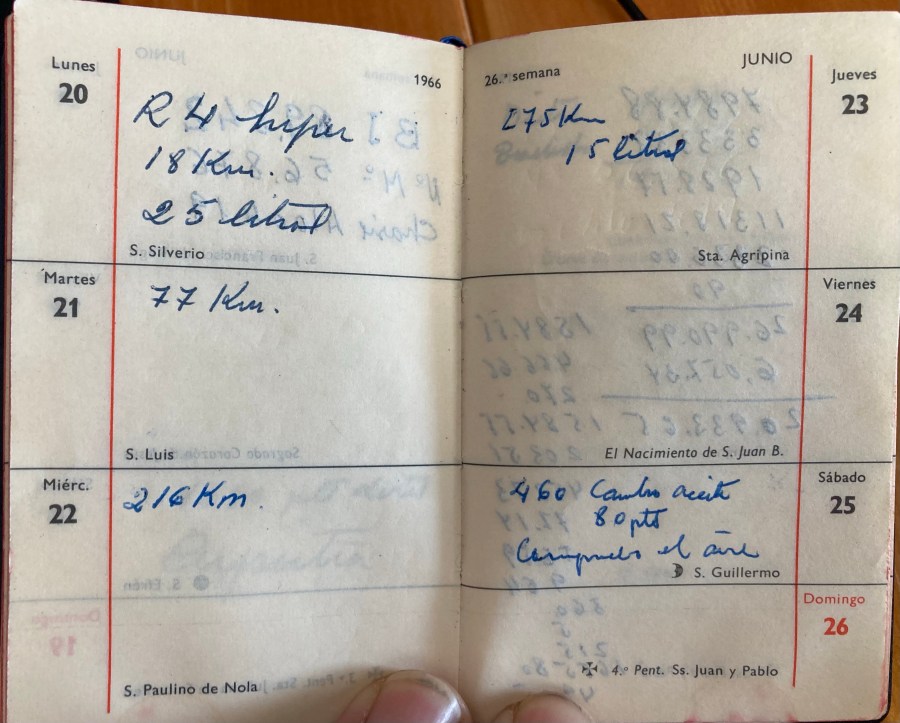 Lunes
20
1966
R 4 Super
18 Km.
25 litros
S. Silverio
Martes
21
77 Km.
S. Luis
Miérc.
22
216 Km.
S. Paulino de Nola
26.ª semana
JUNIO
Jueves
23
275 Km
15 litros
Sta. Agripina
Viernes
24
El Nacimiento de S. Juan B.
Sábado
25
460 Cambio aceite
80 pts
Compruebo el aire
S. Guillermo
Domingo
26
4.º Pent. Ss. Juan y Pablo